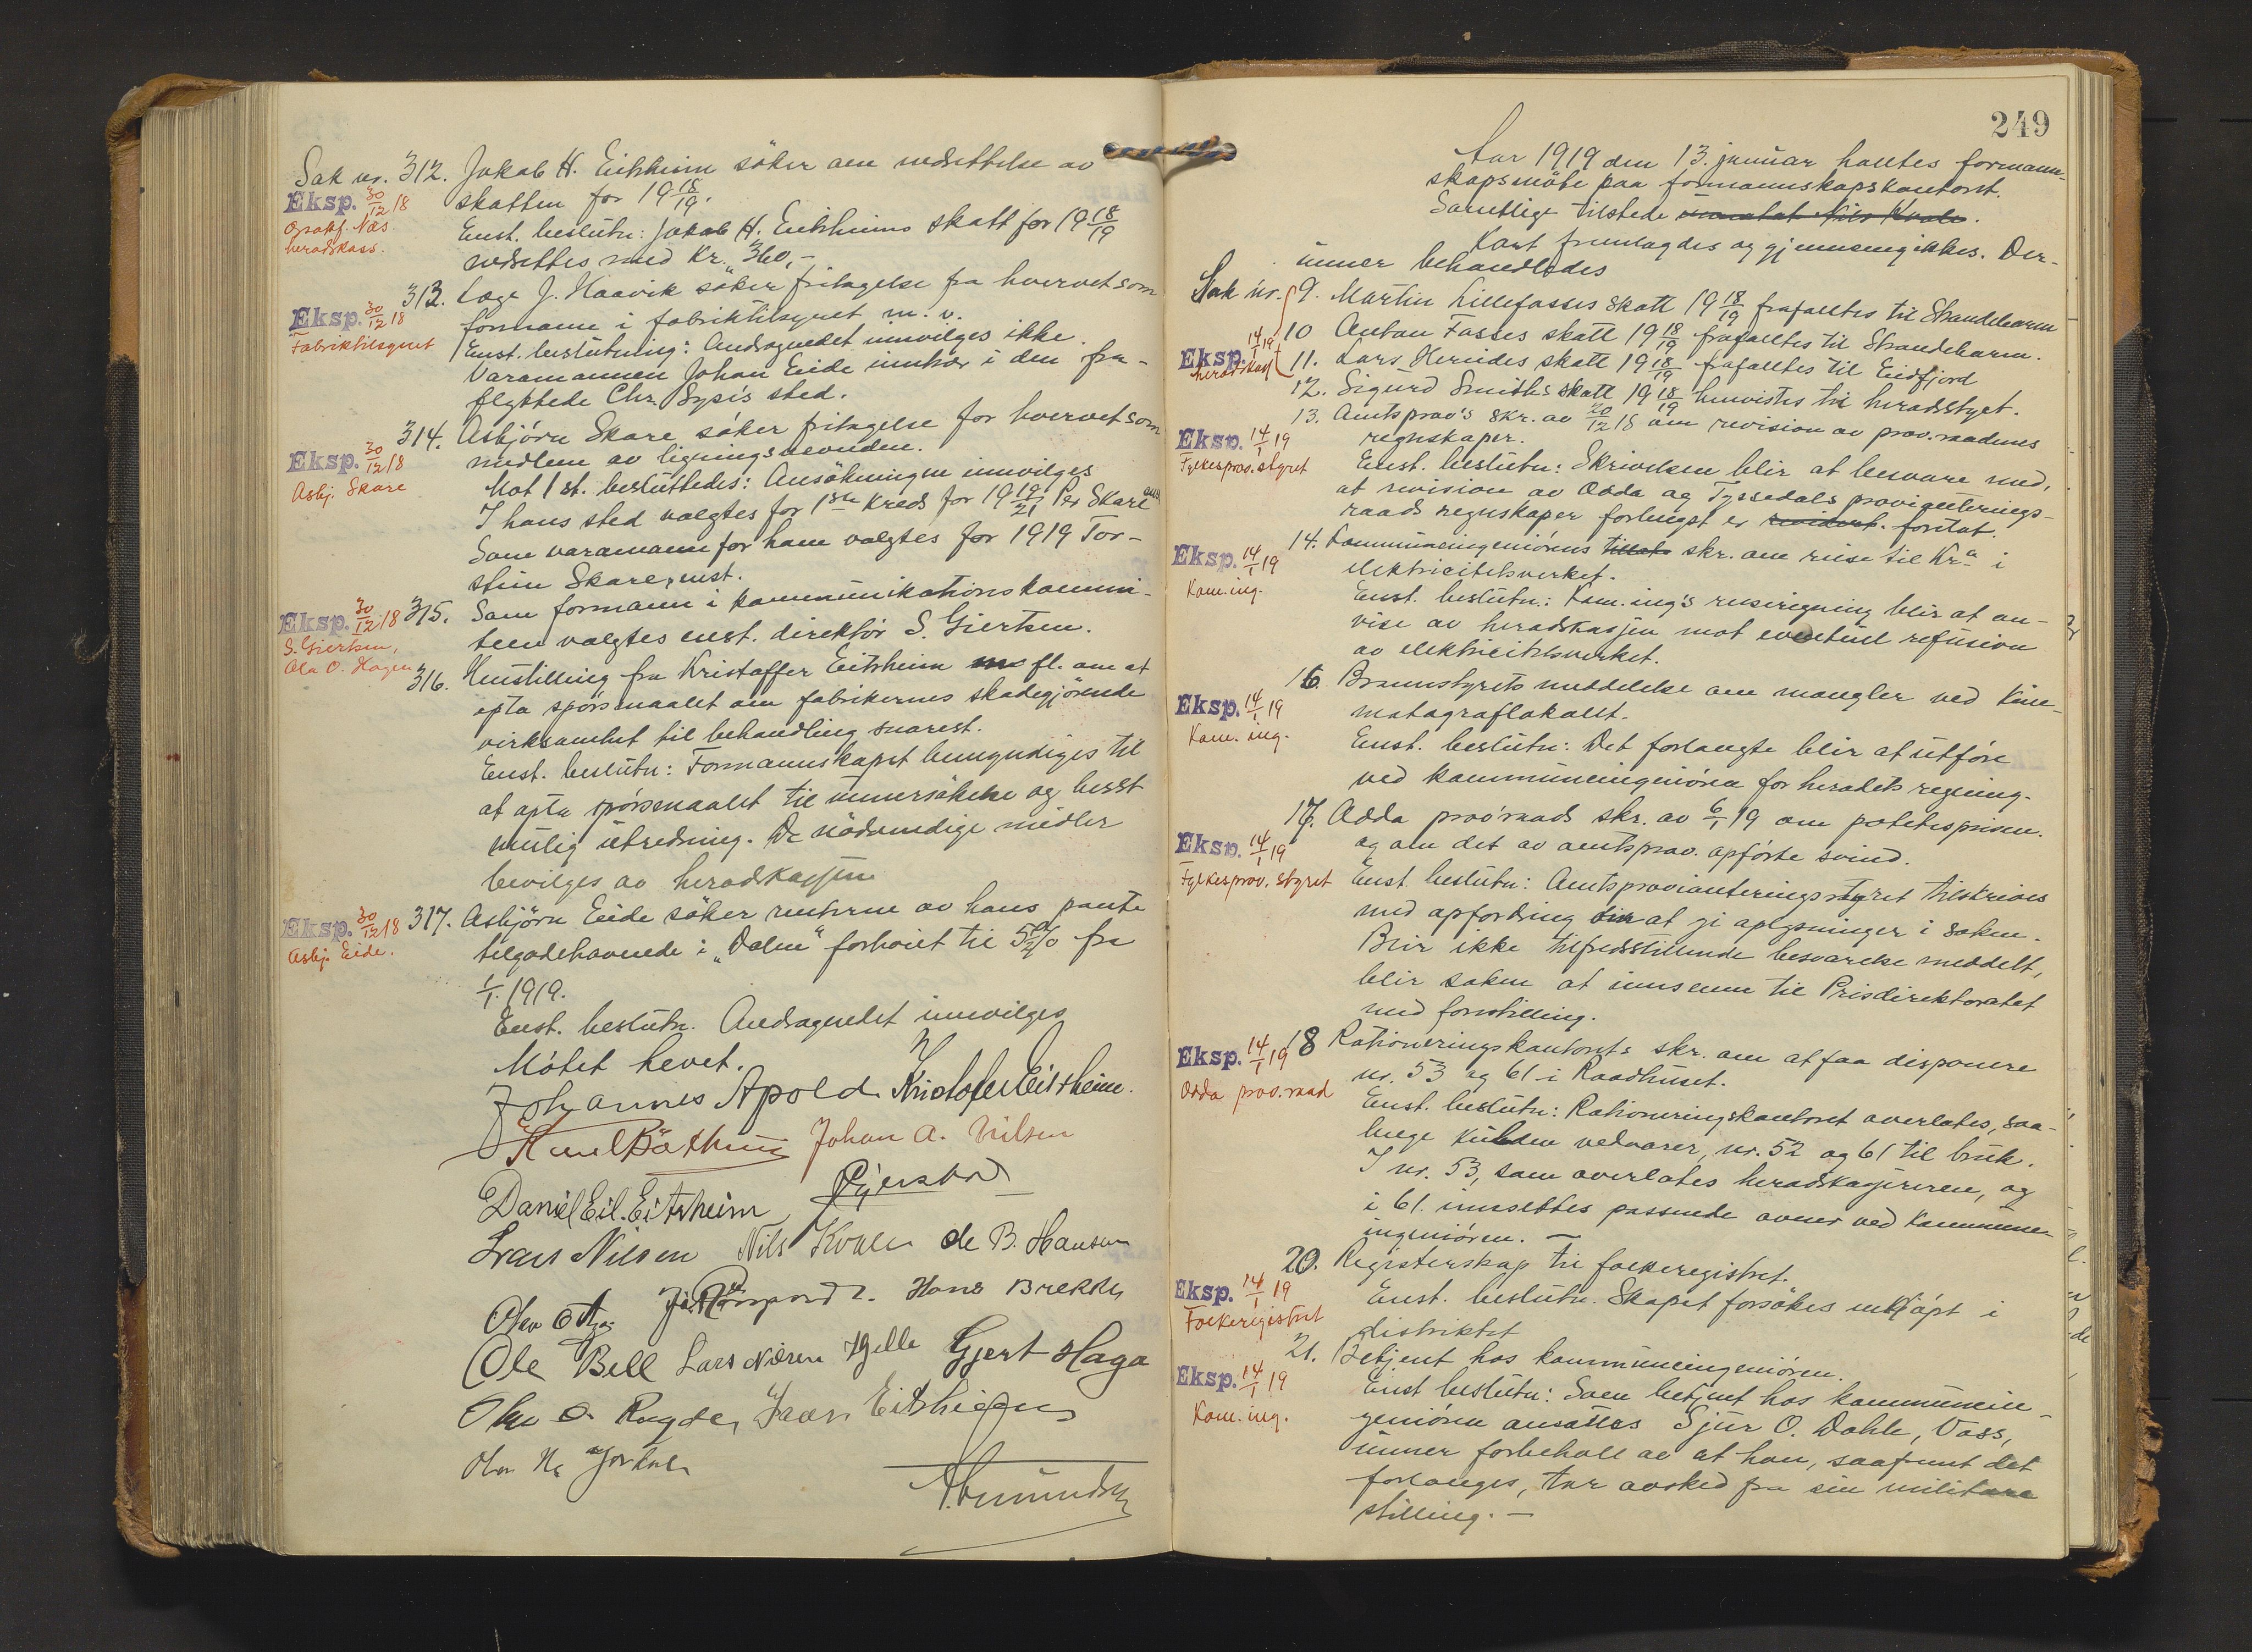 Sak nr. 312. Jakob H. Eitrheim söker om nedsettelse av
Eksp. 30/12 18 skatten for 19 18/19.
Opsatsf. Næs. Enst. beslutn: Jakob H. Eitrheims skatt for 19 18/19
heradskass. nedsettes med Kr. 360,-
313. Læge J. Haavik søker fritagelse fra hvervet som
Eksp. 30/12 18 formann i fabriktilsynet m. v.
Fabriktilsynet Enst. beslutning: Andragendet innvilges ikke.
Varamannen Johan Eide inntrær i den fra-
flyttede Chr. Sysés sted.
314. Asbjörn Skare söker fritagelse for hvervet som
Eksp. 30/12 18 medlem av ligningsnevnden.
Asbj. Skare Mot 1 st. besluttedes: Ansökningen innvilges
I hans sted valgtes for 1ste Kreds for 19 19/21 Per Skare
Som varamann for ham valgtes for 1919 Tor-
stein Skare, enst.
Eksp. 30/12 18 315. Som formann i kommunikationskommi-
S. Giertsen, teen valgtes enst. direktör S. Giertsen.
Ola O. Hagen
316. Henstilling fra Kristoffer Eitrheim m fl. om at
opta spörsmaalet om fabrikernes skadegjörende
virksomhet til behandling snarest.
Enst. beslutn: Formannskapet bemyndiges til
at opta spörsmaalet til unnersökelse og besst
mulig utredning. De nödvendige midler
bevilges av heradskassen
Eksp. 30/12 18 317. Asbjörn Eide söker renterne av hans pante
Asbj. Eide. tilgodehavende i „Dalen" forhöiet til 5 1/2 % fra
1/1. 1919.
Enst. beslutn. Andragendet innvilges
Mötet hevet.
Johannes Apold. Kristofer Eitrheim.
Johan A. Nilsen
Daniel Eil. Eitrheim
Lars Nilsen Nils Kvale de B. Hansen
Hans Brekke
Ole Bell Lars Nilsen Hjelle Gjert Haga
Olav O. Ragde, Eitrheim
249
Aar 1919 den 13. januar holltes formann-
skapsmöte paa formannskapskontoret.
Samtlige tilstede unntat Nils Kvale.
Kort fremlagdes og gjennemgikkes. Der-
unner behandledes
Sak nr. 9. Martin Lillefosses skatt 19 18/19 frafalltes til Strandebarm
10 Anton Fosses skatt 19 18/19 frafalltes til Strandebarm.
Eksp. 14/1 19 heradskass 11. Lars Hereides skatt 19 18/19 frafalltes til Eidfjord
12. Sigurd Smiths skatt 19 18/19 henvistes til heradsstyret.
13. Amtsprov's skr. av 20/12 18 om revision av prov.raadenes
Eksp. 14/1 19 regnskaper.
Fylkesprov.styret Enst. beslutn: Skrivelsen blir at besvare med,
at revision av Odda og Tyssedals provianterings-
raads regnskaper forlengst er revidert. foretat.
14. Kommuneingeniörens tillat skr. om reise til Kr.a i
Eksp. 14/1 19 elektricitetsverket.
Kom.ing. Enst. beslutn.: Kom.ing's reiseregning blir at an-
vise av heradskassen mot eventuel refusion
av elektricitetsverket.
16. Brannstyrets meddelelse om mangler ved kine-
Eksp. 14/1 19 matograflokalet.
Kom. ing. Enst. beslutn: Det forlangte blir at utföre
ved kommuneingeniören for heradets regning.
17. Odda prov'raads skr. av 6/1 19 om potetesprisen.
Eksp. 14/1 19 og om det av amtsprov. opförte svind.
Fylkesprov. styret Enst. beslutn: Amtsprovianteringsstyret tilskrives
med opfordring om at gi oplysninger i saken.
Blir ikke tilfredsstillende besvarelse meddelt,
blir saken at innsenne til Prisdirektoratet
med forestilling.
Eksp. 14/1 19 18 Rationeringskontorets skr. om at faa disponere
Odda prov.raad nr. 53 og 61 i Raadhuset.
Enst. beslutn: Rationeringskontoret overlates, saa-
lenge kulden vedvarer, nr. 52 og 61 til bruk.
I nr. 53, som overlates heradskassereren, og
i 61. innsettes passende ovner ved Kommune-
ingeniören. —
20. Registerskap til folkeregistret.
Eksp. 14/1 19 Enst. beslutn. Skapet forsökes innkjöpt i
Folkeregistret distriktet
21. Betjent hos kommuneingeniören.
Eksp. 14/1 19 Enst beslutn: Som betjent hos kommunein-
Kom. ing. geniören ansattes Sjur O. Dahle, Voss,
unner forbehall av at han, saafremt det
forlanges, tar avsked fra sin militære
stilling. —